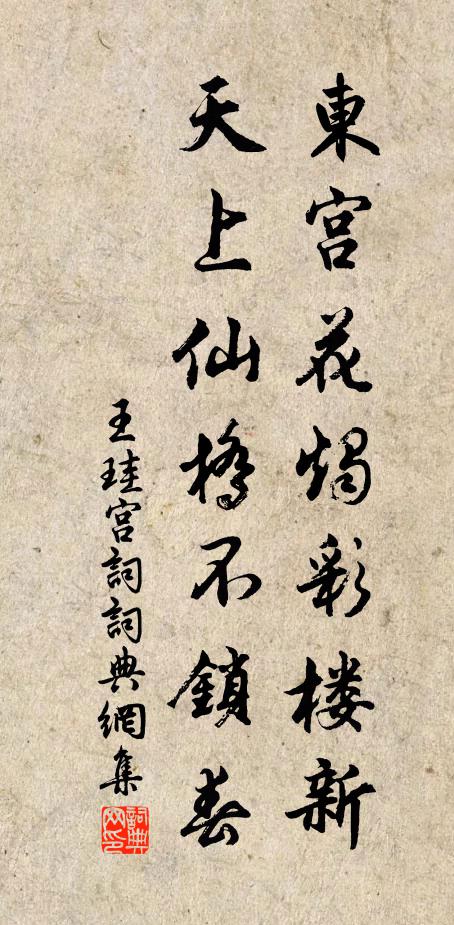 東宮花燭彩楼新
天上仙橋不鎖春
王珪宮詞詞典網集
詞典网印